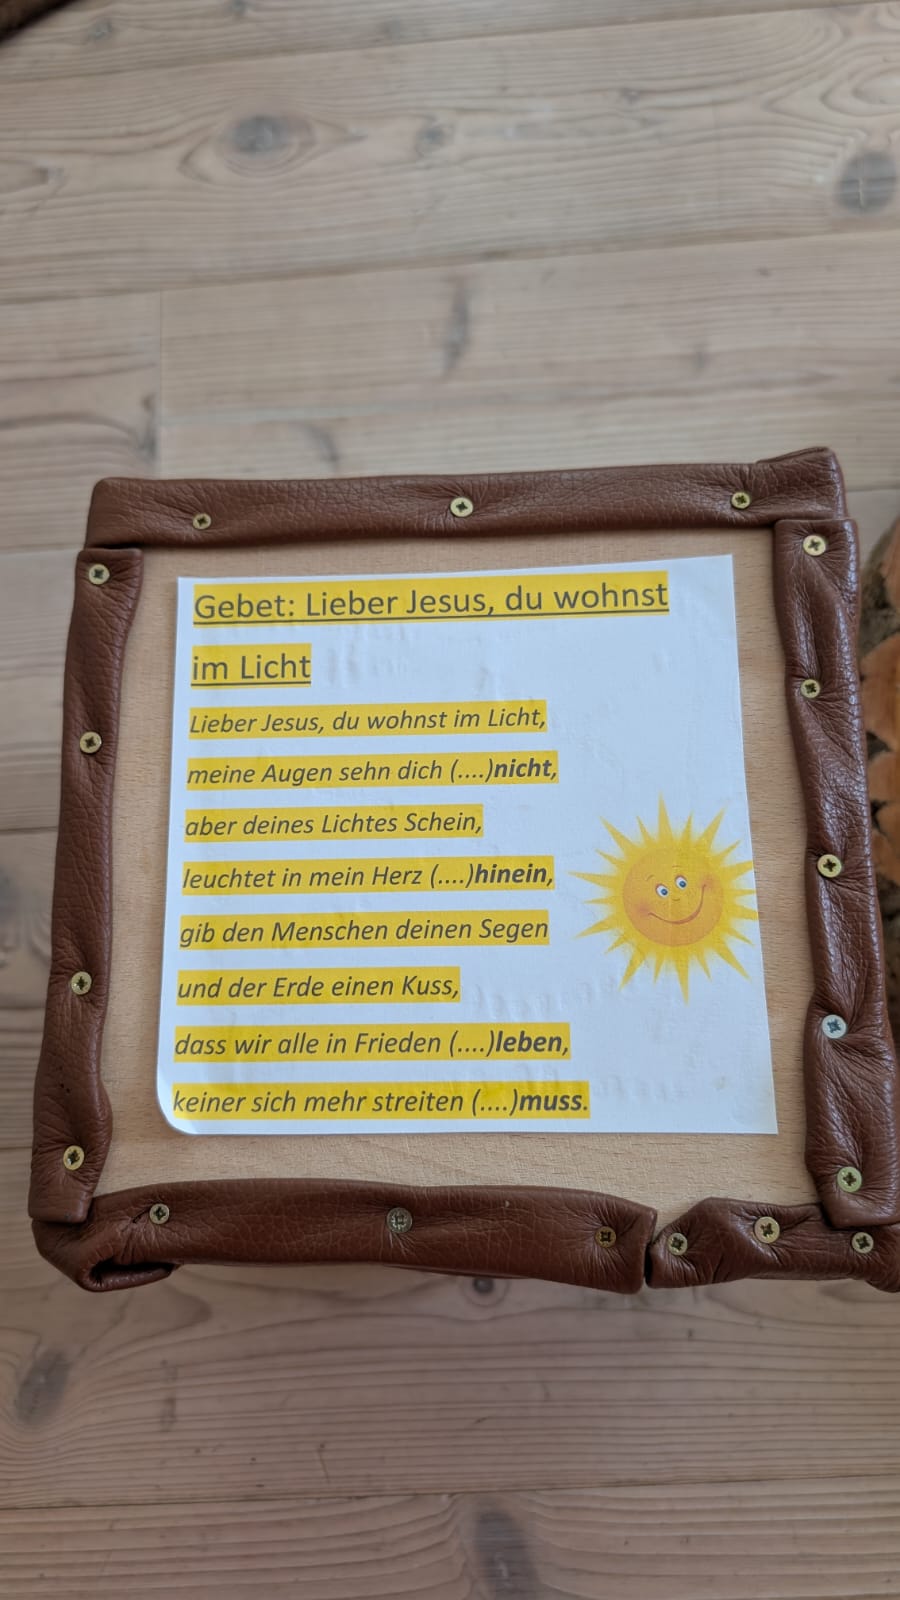 Gebet: Lieber Jesus, du wohnst
im Licht
Lieber Jesus, du wohnst im Licht,
meine Augen sehn dich (....)nicht,
aber deines Lichtes Schein,
leuchtet in mein Herz (....)hinein,
gib den Menschen deinen Segen
und der Erde einen Kuss,
dass wir alle in Frieden (....)leben,
keiner sich mehr streiten (....)muss.